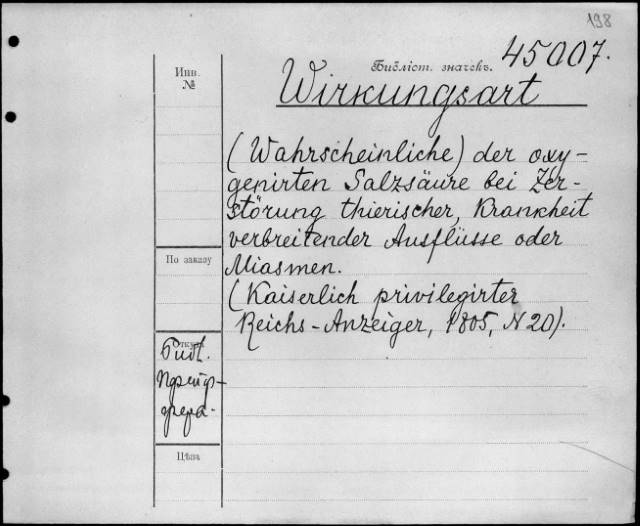 198
Библіот. значекъ. 45007.
Инв.
№
Wirkungsart
(Wahrscheinliche) der oxy-
genirten Salzsäure bei Zer-
störung thierischer, Krankheit
verbreitender Ausflüsse oder
Miasmen.
(Kaiserlich privilegirter
Reichs-Anzeiger, 1805, N 20).
По заказу
Откуда
Библ.
Пфейф-
фера.
Цѣна